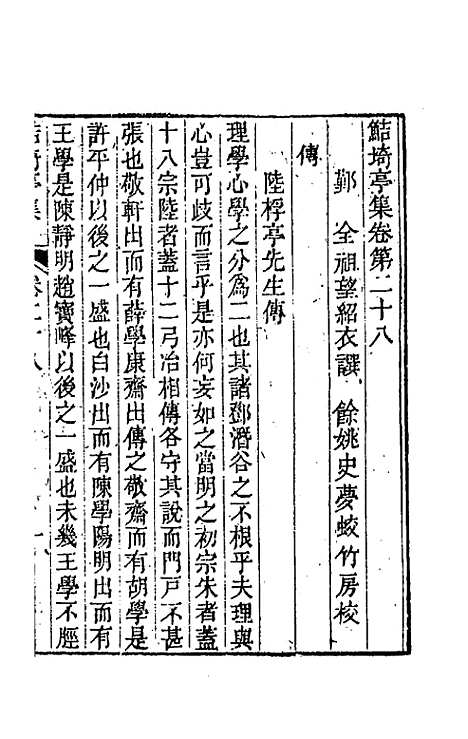 鮚埼亭集卷第二十八
鄞　全祖望紹衣譔　餘姚史夢蛟竹房校
傳
陸桴亭先生傳
理學心學之分為二也其諸鄧潛谷之不根乎夫理與
心豈可歧而言乎是亦何妄如之當明之初宗朱者蓋
十八宗陸者蓋十二弓冶相傳各守其說而門戶不甚
張也敬軒出而有薛學康齋出傳之敬齋而有胡學是
許平仲以後之一盛也白沙出而有陳學陽明出而有
王學是陳靜明趙寶峰以後之一盛也未幾王學不脛
鮚埼亭集　卷二十八　一